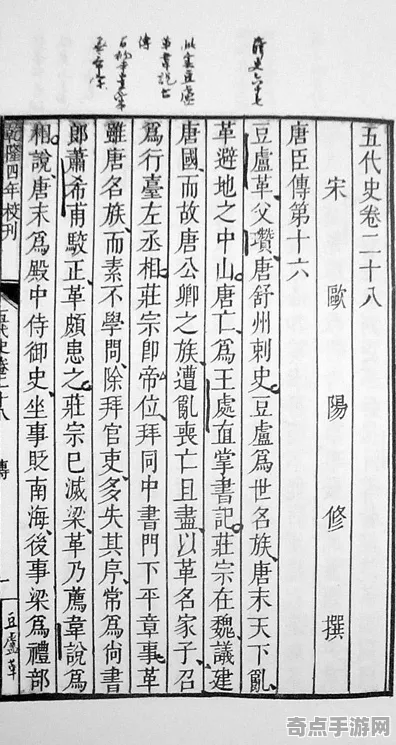 薛史六十七
五代史卷二十八
宋歐陽修撰
唐臣傳第十六
豆盧革父瓚唐舒州刺史豆盧爲世名族唐末天下亂
革避地之中山唐亡爲王處直掌書記莊宗在魏議建
唐國而故唐公卿之族遭亂喪亡且盡以革名家子召
爲行臺左丞相莊宗卽帝位拜同中書門下平章事革
雖唐名族而素不學問除拜官吏多失其序常爲尚書
郎蕭希甫駮正革頗患之莊宗已滅梁革乃薦韋說爲
相說唐末爲殿中侍御史坐事貶南海後事梁爲禮部
乾隆四年校刊
五代史卷二十八
傳
一
豆盧革
奇点手游网